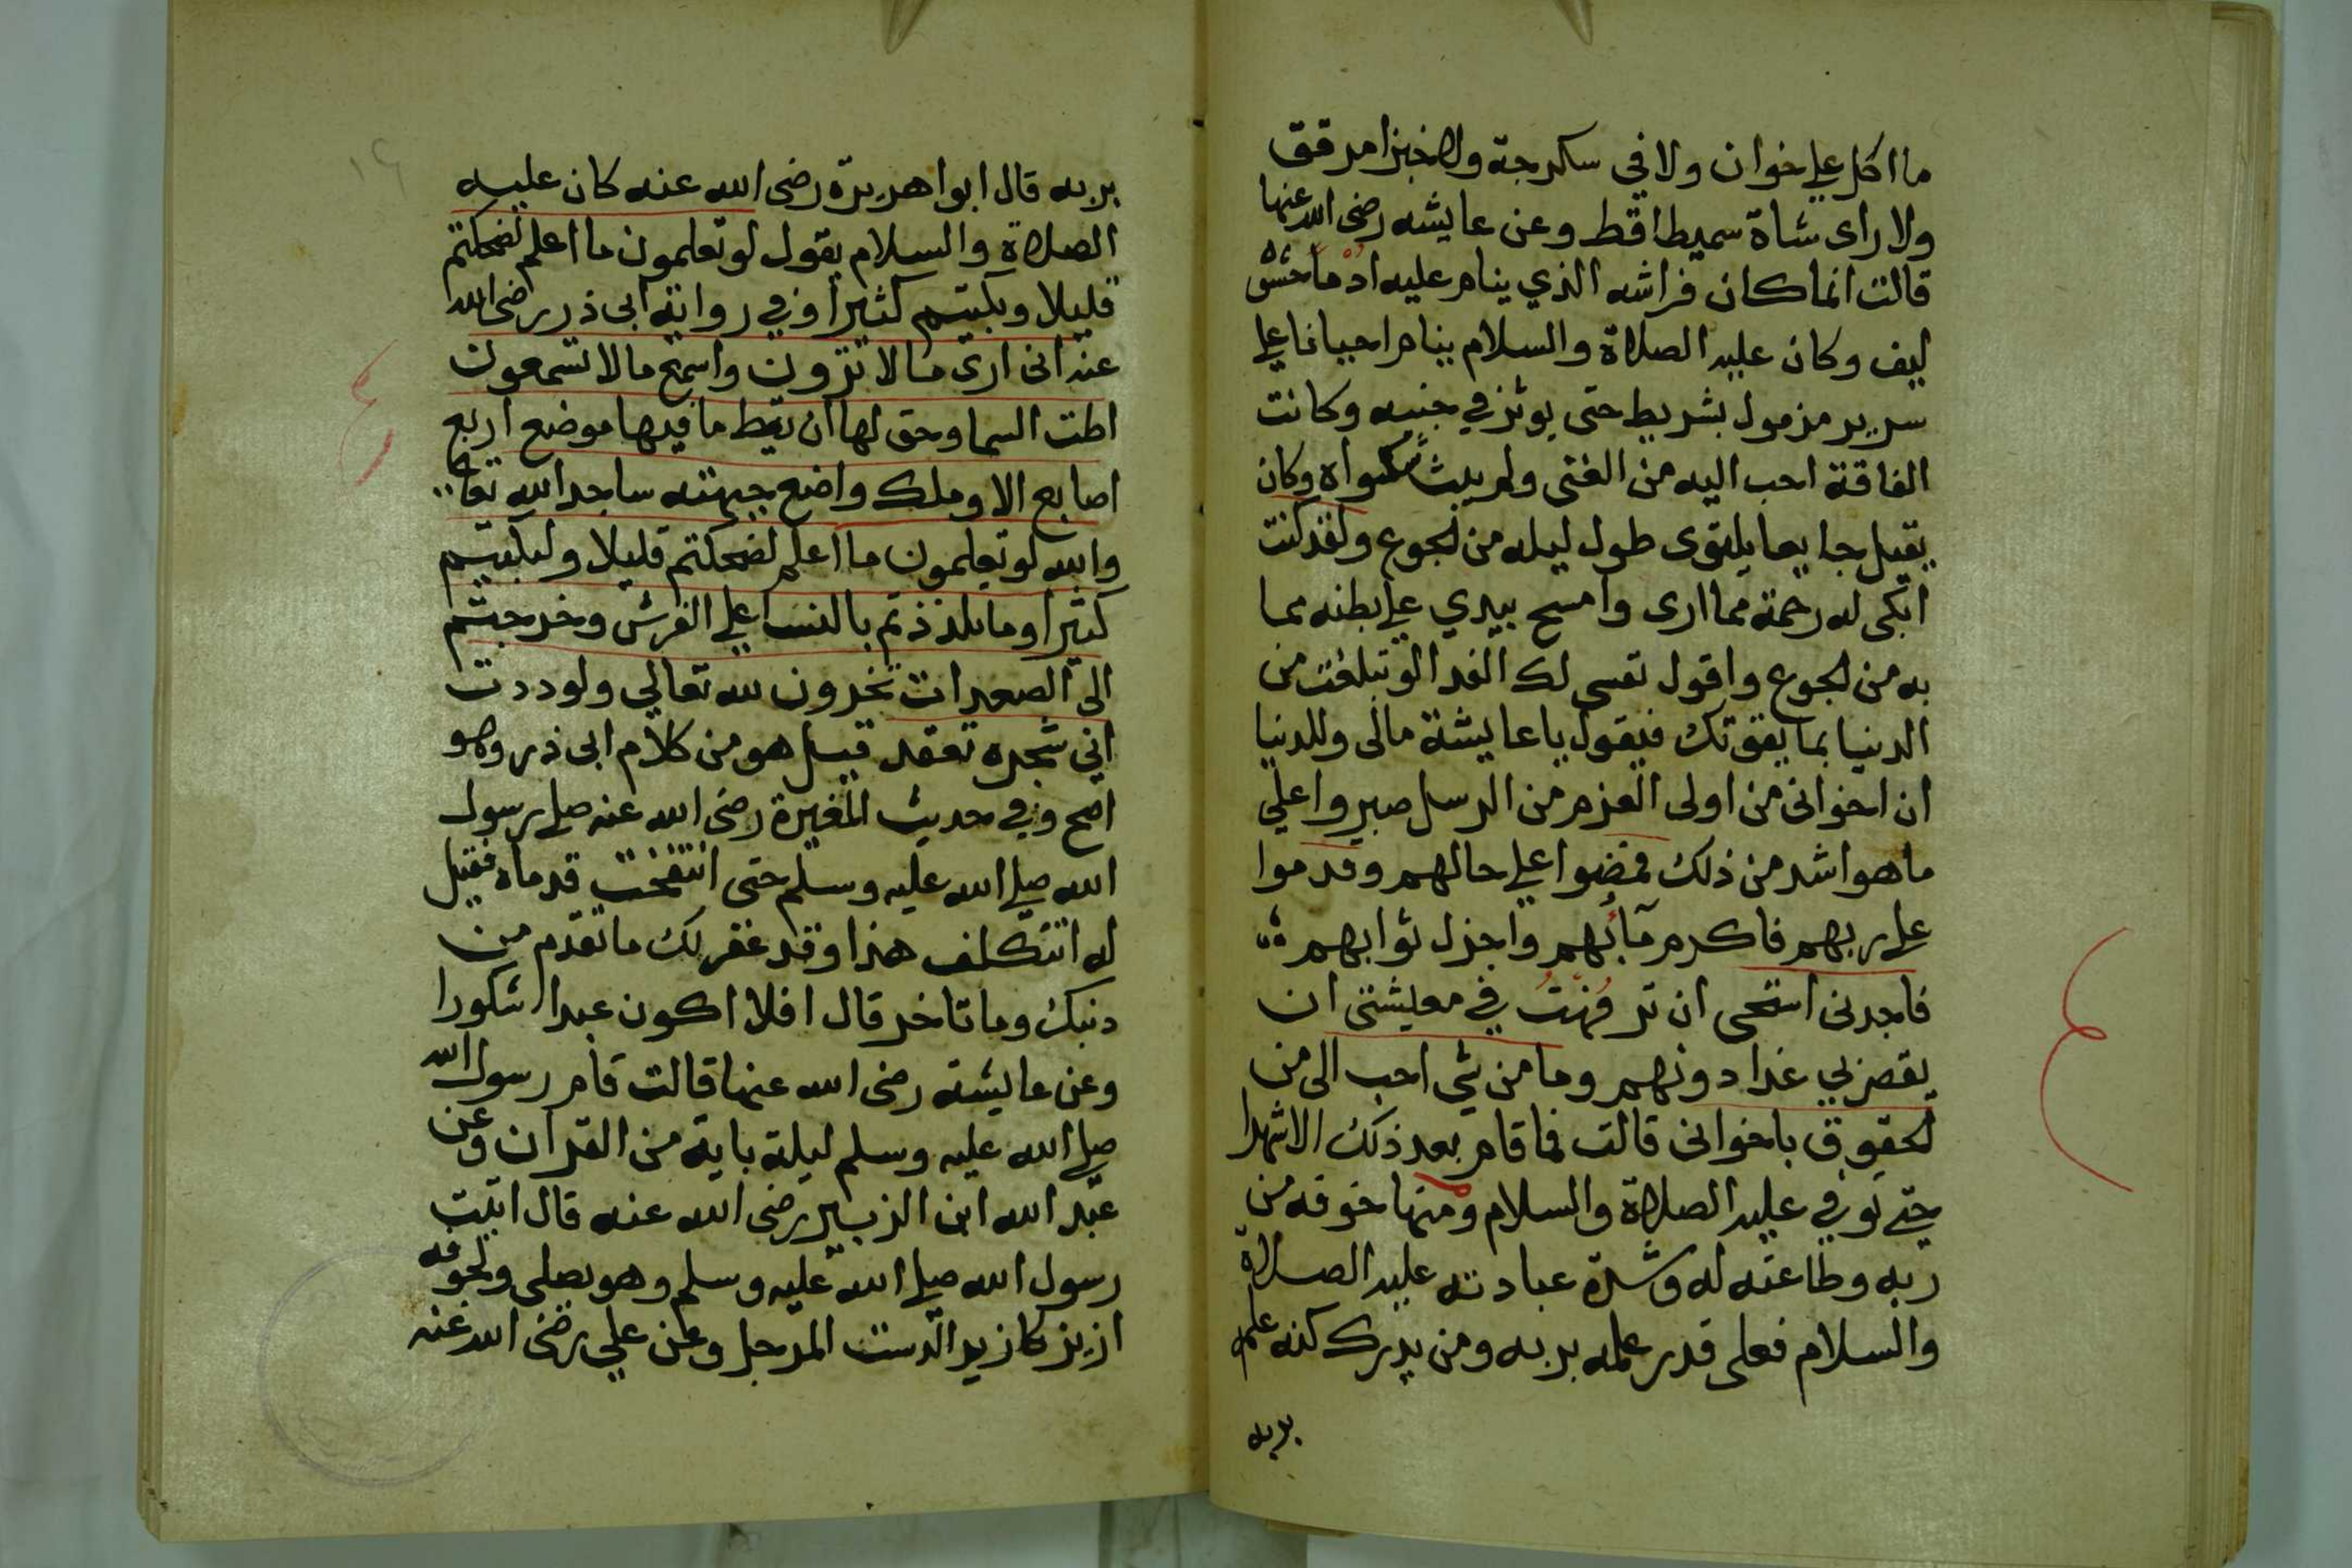 ما اكل علي خوان ولا في سكرجة ولا خبزا مرقق
ولا راى شاة سميطا قط وعن عايشه رضى الله عنها
قالت انما كان فراشه الذي ينام عليه ادما حشوه
ليف وكان عليه الصلاة والسلام ينام احيانا علي
سرير مزمول بشريط حتى يوثر في جنبه وكانت
الفاقة احب اليه من الغنى ولم يبث شكواه وكان
يقيل جايعا يلتوى طول ليله من الجوع ولقد كنت
ابكى له رحمة مما ارى وامسح بيدي علي بطنه مما
به من الجوع واقول نفسى لك الفدا لو تبلغت من
الدنيا بما يقوتك فيقول يا عايشة مالى وللدنيا
ان اخوانى من اولى العزم من الرسل صبروا على
ما هو اشد من ذلك فمضوا علي حالهم وقدموا
على ربهم فاكرم مآبهم واجزل ثوابهم
فاجدنى استحى ان ترفهت في معيشتى ان
يقصر بي غدا دونهم وما من شي احب الى من
لحقوق باخوانى قالت فما قام بعد ذلك الا شهرا
حتي توفي عليه الصلاة والسلام ومنها خوفه من
ربه وطاعته له وشدة عبادته عليه الصلاة
والسلام فعلى قدر علمه بربه ومن يدرك كنه علمه
بربه
١٤
بربه قال ابوا هريرة رضى الله عنه كان عليه
الصلاة والسلام يقول لو تعلمون ما اعلم لضحكتم
قليلا وبكيتم كثيرا وفي رواية ابى ذر رضى الله
عنه انى ارى ما لا ترون واسمع ما لا تسمعون
اطت السما وحق لها ان تيط ما فيها موضع اربع
اصابع الا وملك واضع جبهته ساجدا لله تعالى
والله لو تعلمون ما اعلم لضحكتم قليلا ولبكيتم
كثيرا وما تلذذتم بالنسا علي الفرش وخرجتم
الى الصعدات تخرون لله تعالي ولوددت
اني شجره تعقد قيل هو من كلام ابى ذر وهو
اصح وفي حديث المغيرة رضى الله عنه صلى رسول
الله صلي الله عليه وسلم حتى انتفخت قدماه فقيل
له اتتكلف هذا وقد غفر لك ما تقدم من
دنبك وما تاخر قال افلا اكون عبدا شكورا
وعن عايشة رضى الله عنها قالت قام رسول الله
صلي الله عليه وسلم ليلة باية من القران وعن
عبد الله ابن الزبير رضى الله عنه قال اتيت
رسول الله صلي الله عليه وسلم وهو يصلى ولجوفه
ازيز كازيد الدست المرجل وعن علي رضى الله عنه